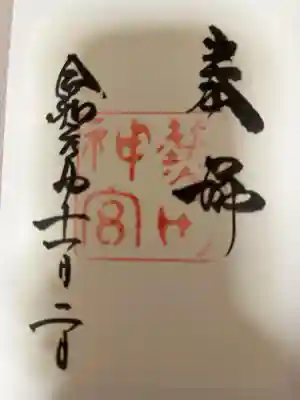 奉拝
熱田
神宮
令和元年十一月二日